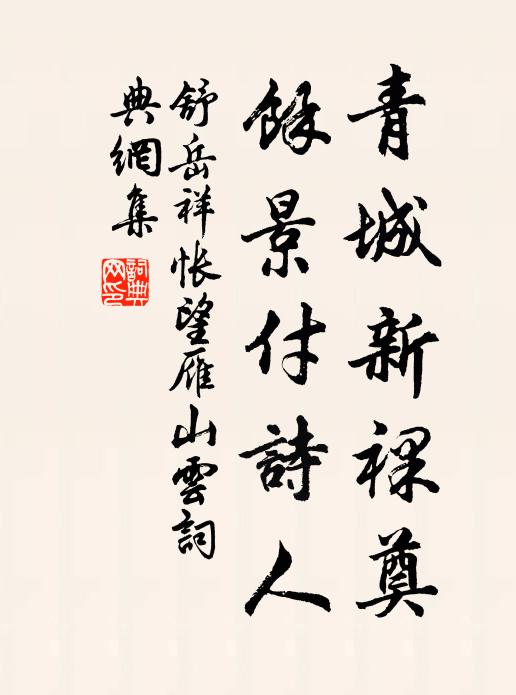 青城新祼奠
餘景付詩人
舒岳祥悵望雁山雲詞
典網集
詞典
网印